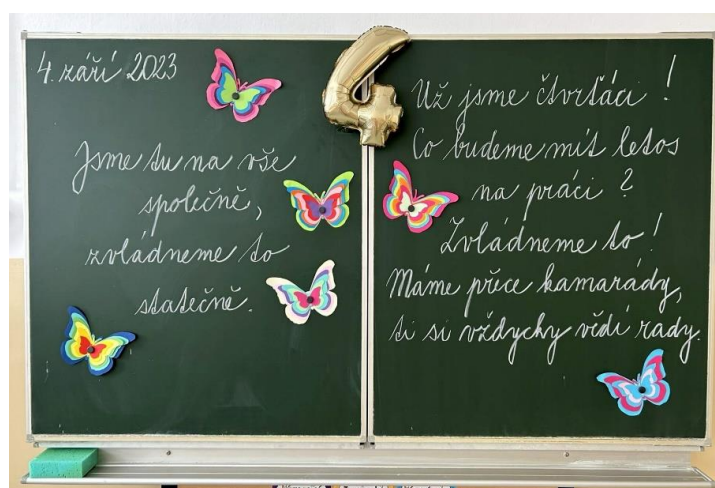 4. září 2023
Jsme tu na vše
společně,
zvládneme to
statečně.
4
Už jsme čtvrťáci !
Co budeme mít letos
na práci ?
Zvládneme to !
Máme přece kamarády,
ti si vždycky vědí rady.